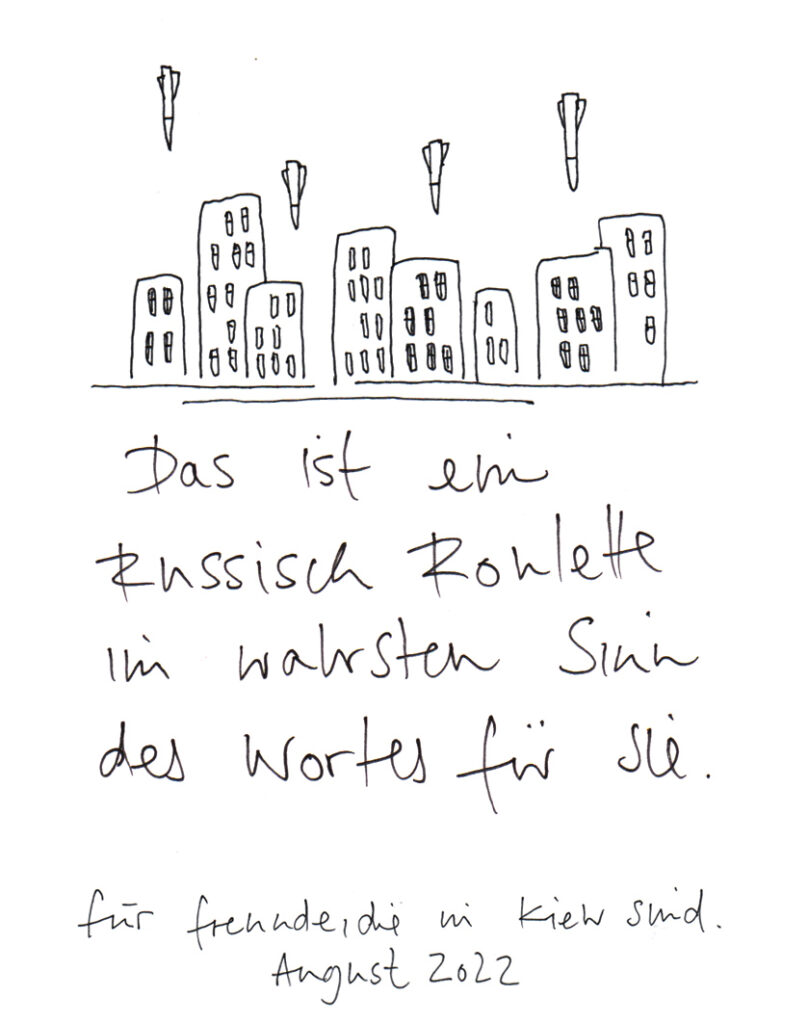 Das ist ein
Russisch Roulette
im wahrsten Sinn
des Wortes für sie.
für freunde, die in Kiew sind.
August 2022